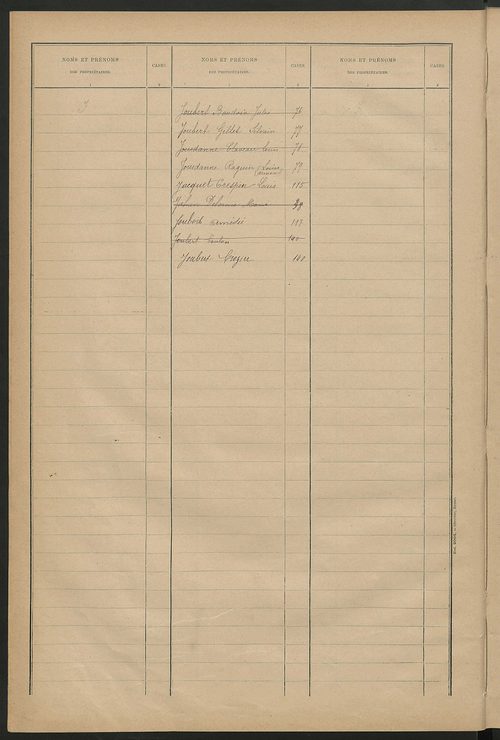 NOMS ET PRÉNOMS
DES PROPRIÉTAIRES.
CASES
NOMS ET PRÉNOMS
DES PROPRIÉTAIRES.
CASES
NOMS ET PRÉNOMS
DES PROPRIÉTAIRES.
CASES
J
Joubert Baudoin Jules 76
Joubert Gillet Silvain 77
Jourdanne Claveau Louis 78
Jourdanne Raguin (Louis 79
Jacquet Crespin Louis 115
Delaunes Marie
Amédée 197
Joubert 100
Joubert 101